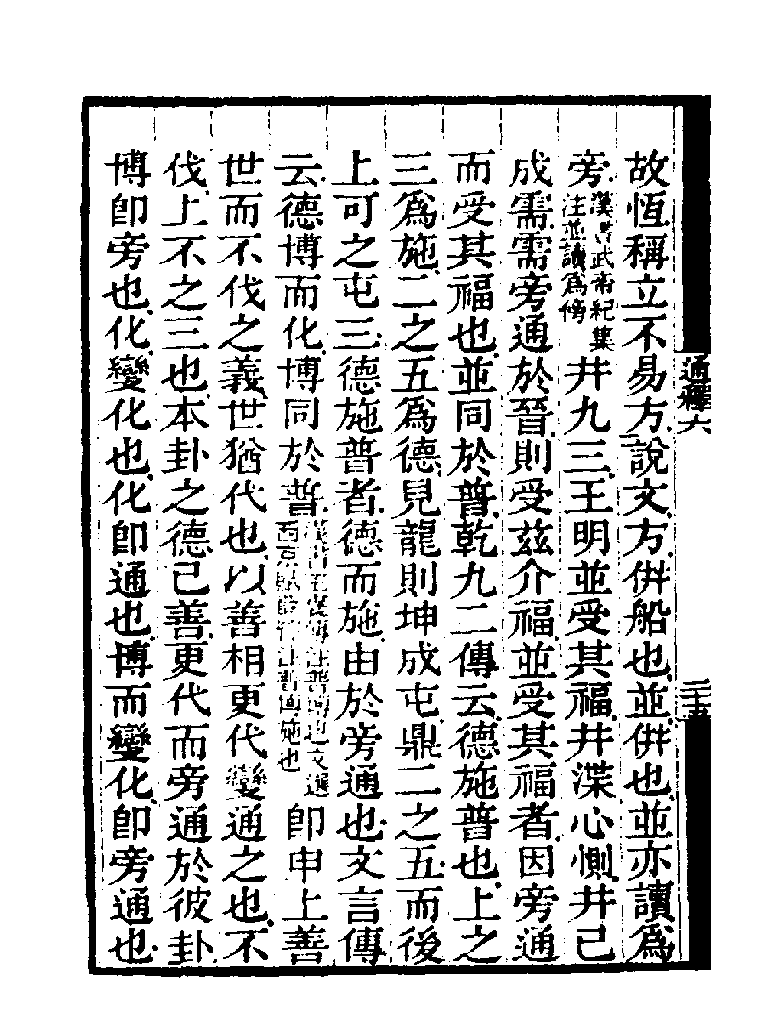 故恆稱立不易方說文方倂船也並倂也並亦讀為
旁漢書武帝紀集注並讀為傍井九三王明並受其福井渫心惻井已
成需需旁通於晉則受茲介福並受其福者因旁通
而受其福也並同於普乾九二傳云德施普也上之
三為施二之五為德見龍則坤成屯鼎二之五而後
上可之屯三德施普者德而施由於旁通也文言傳
云德博而化博同於普即申上善
世而不伐之義世猶代也以善相更代變通之也不
伐上不之三也本卦之德已善更代而旁通於彼卦
博即旁也化變化也化即通也博而變化即旁通也
通釋六
三十五